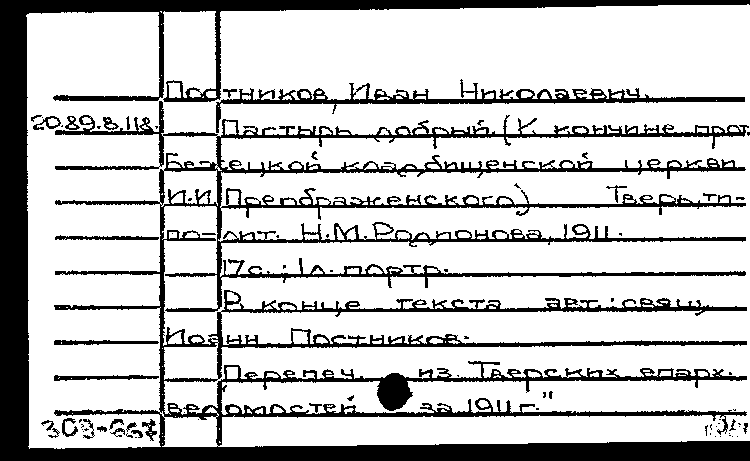 Постников, Иван Николаевич.
20.89.8.118. Пастырь добрый. (К кончине прот.
Бежецкой кладбищенской церкви
И.И. Преображенского) Тверь, ти-
по-лит. Н.М. Родионова, 1911.
17с.; 1л. портр.
В конце текста авт.: свящ.
Иоанн Постников.
Перепеч. из "Тверских епарх.
ведомостей за 1911 г."
309-667